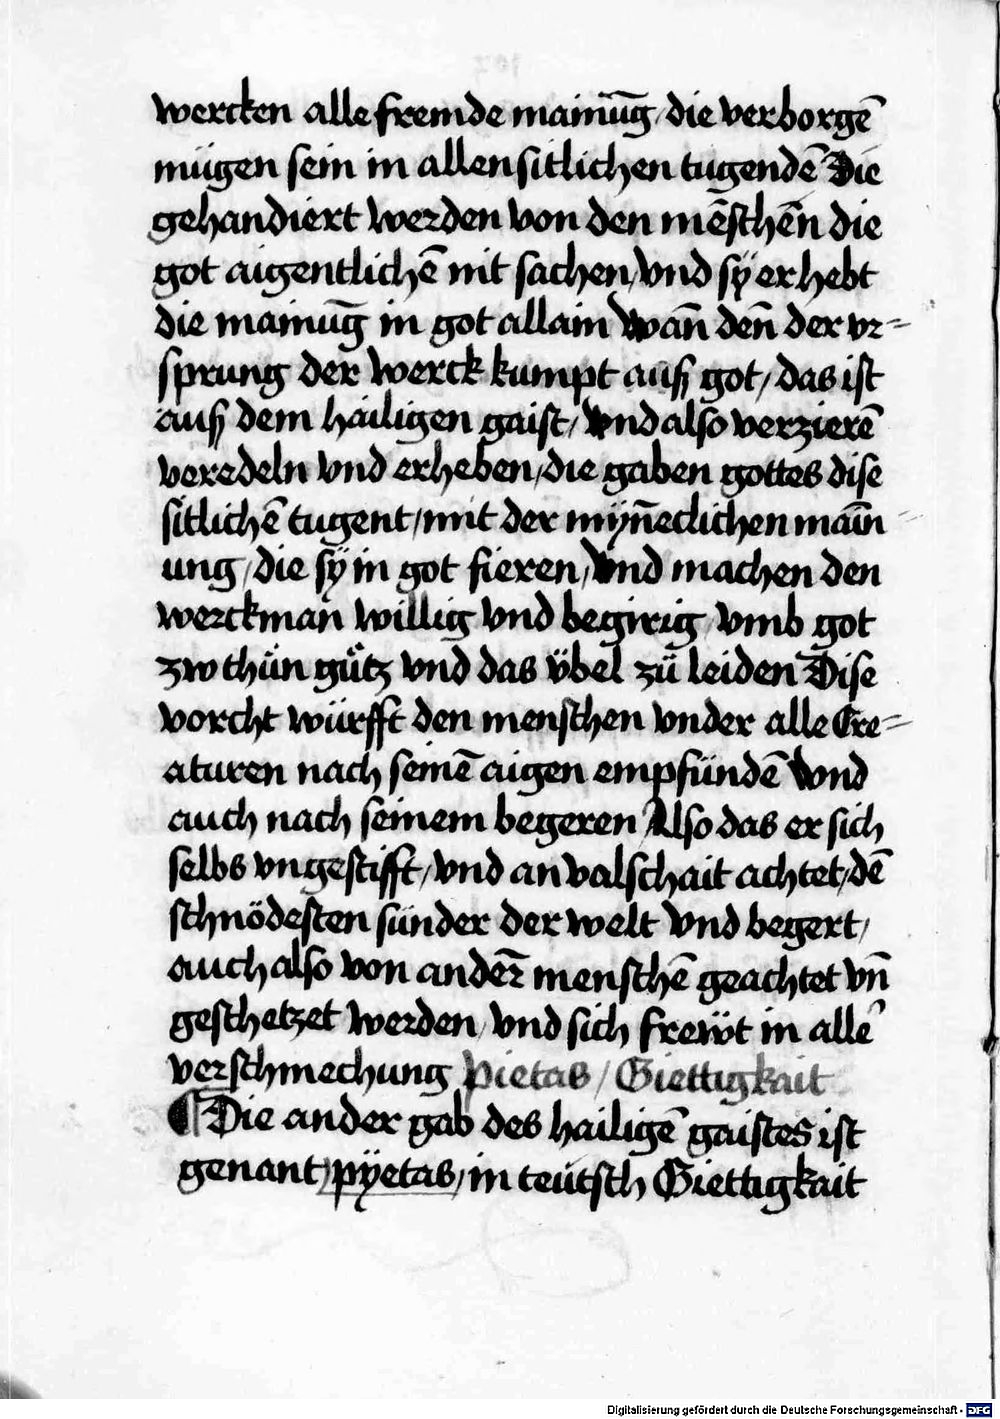 wercken alle fremde mainūg / die verborgē
mügen sein in allen sitlichen tugendē Die
gehandiert werden von den mēschēn die
got aigentlichē mit sachen / vnd sÿ erhebt
die mainūg in got allain wan̄ den̄ der vr=
sprung der werck kumpt auß got / das ist
auß dem hailigen gaist / vnd also verzierē
veredeln vnd erheben / die gaben gottes dise
sitlichē tugent / mit der mÿn̄eclichen main̄
ung / die sÿ in got fieren / vnd machen den
werckman willig vnd begirig vmb got
zw thůn gůtz vnd das übel zů leiden Dise
vorcht würfft den menschen vnder alle Cre=
aturen nach seinē aigen empfündē vnd
auch nach seinem begeren Also das er sich
selbs vngestifft / vnd an valschait achtet / dē
schnödesten sünder der welt vnd begert /
auch also vonander̄ menschē geachtet vn̄
geschetzet werden / vnd sich frewt in alle
verschmechung Pietas / Giettigkait
¶ Die ander gab des hailigē gaistes ist
genant / pÿetas / in teütsch Giettigkait
Digitalisierung gefördert durch die Deutsche Forschungsgemeinschaft - DFG